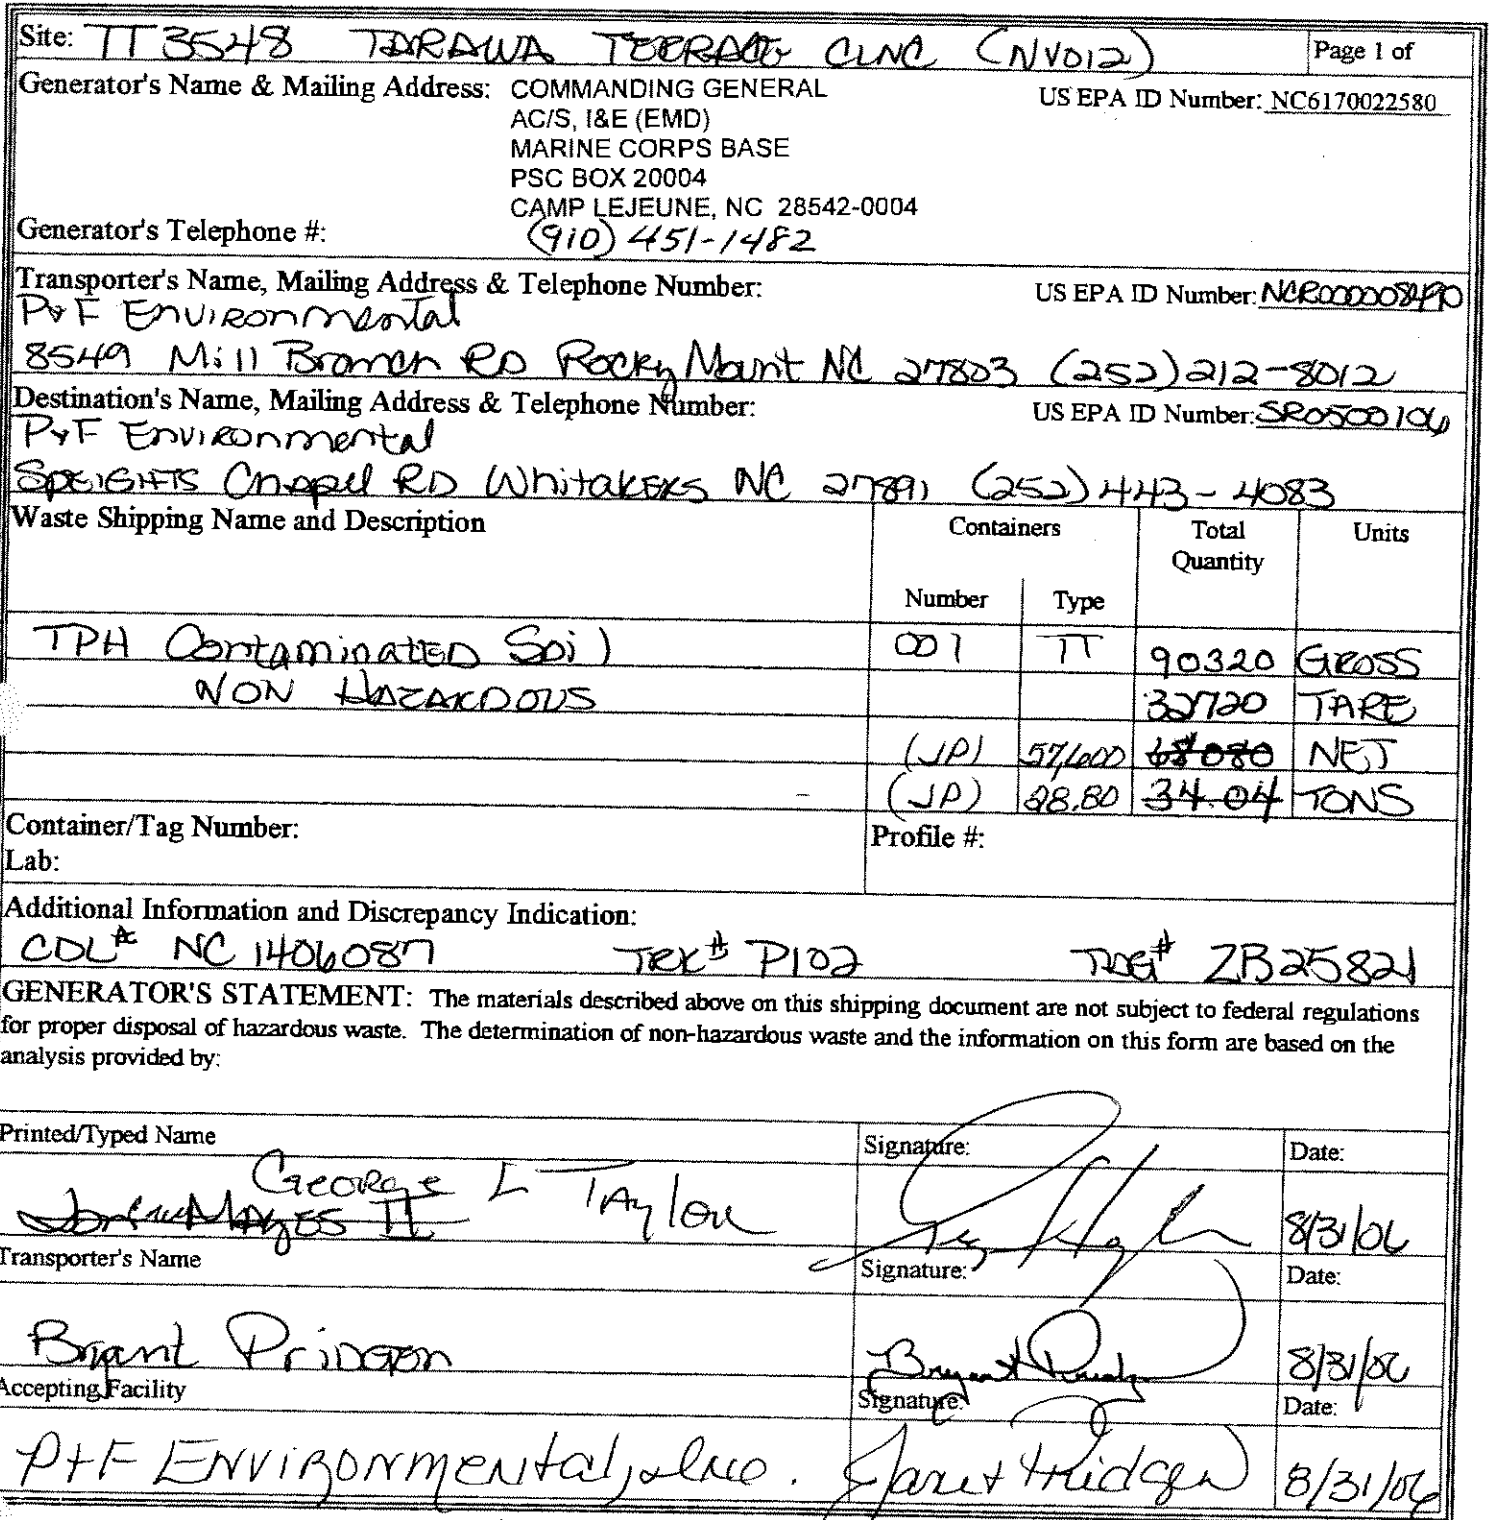 Site: TT3548 TARAWA TERRACE CLNC (NV012) Page 1 of
Generator's Name & Mailing Address: COMMANDING GENERAL US EPA ID Number: NC6170022580
AC/S, I&E (EMD)
MARINE CORPS BASE
PSC BOX 20004
CAMP LEJEUNE, NC 28542-0004
Generator's Telephone #: (910) 451-1482
Transporter's Name, Mailing Address & Telephone Number: US EPA ID Number:
P&F Environmental
8549 Mill Branch RD Rocky Mount NC 27803 (252)212-8012
Destination's Name, Mailing Address & Telephone Number: US EPA ID Number: SR0500106
P&F Environmental
SPEIGHTS Chapel RD Whitakers NC 27891 (252)443-4083
Waste Shipping Name and Description Containers Total Quantity Units
Number Type
TPH Contaminated Soil 001 TT 90320 GROSS
NON HAZARDOUS 32720 TARE
(JP) 57,600 68080 NET
(JP) 28.80 34.04 TONS
Container/Tag Number: Profile #:
Lab:
Additional Information and Discrepancy Indication:
CDL# NC 1406087 TRK# P102 TAG# ZB25821
GENERATOR'S STATEMENT: The materials described above on this shipping document are not subject to federal regulations
for proper disposal of hazardous waste. The determination of non-hazardous waste and the information on this form are based on the
analysis provided by:
Printed/Typed Name Signature: Date:
George L Taylor
Mayes II 8/31/06
Transporter's Name Signature: Date:
Bryant Pridgen Bryant 8/31/06
Accepting Facility Signature: Date:
P+F Environmental, Inc. Janet Pridgen 8/31/06